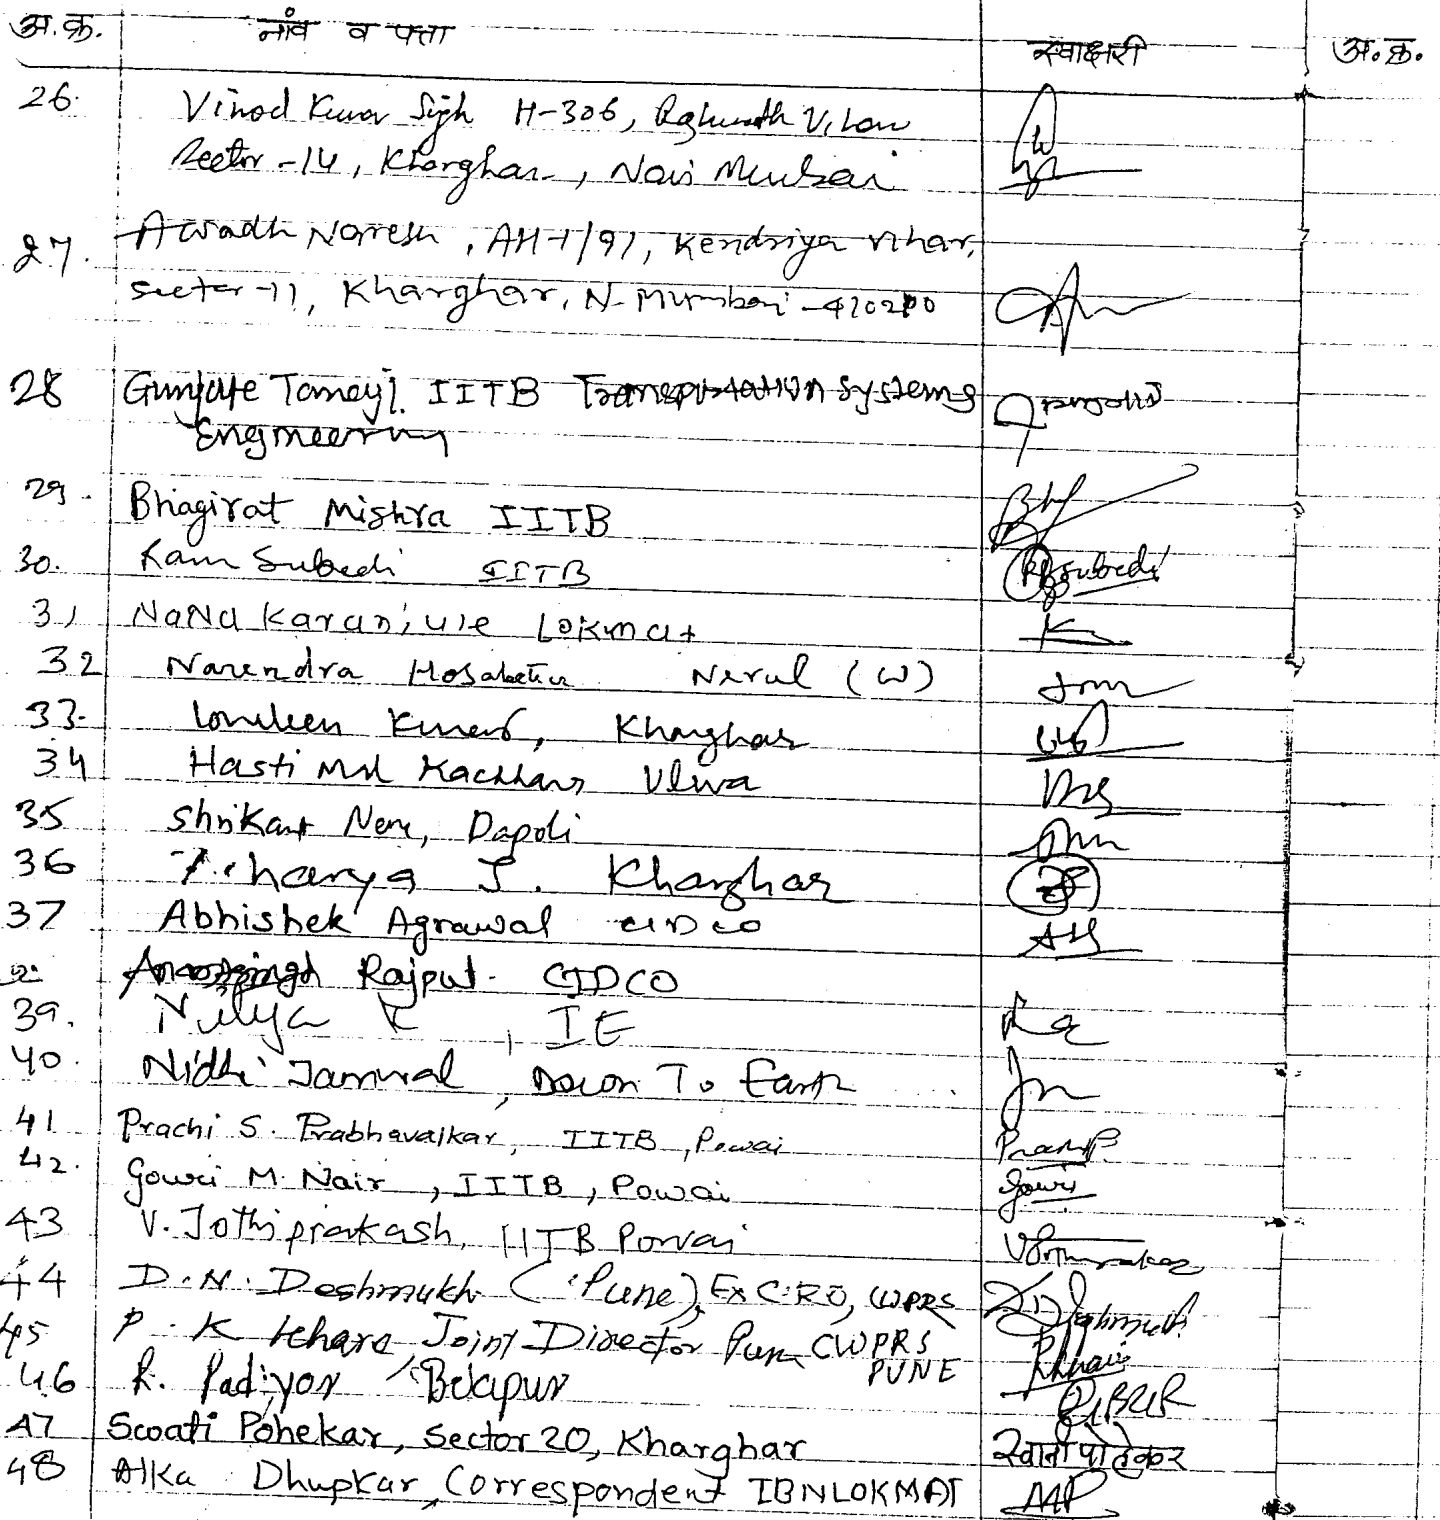 अ.क्र. नांव व पत्ता स्वाक्षरी अ.क्र.
26. Vinod Kumar Singh H-306, Raghunath Vihar
Sector-14, Kharghar, Navi Mumbai
27. Awadh Naresh, AH-1/91, Kendriya Vihar,
Sector-11, Kharghar, N-Mumbai-410210
28 Tanaji. IITB Transportation Systems
Engineering
29. Bhagirat Mishra IITB
30. Ram Subedi IITB RBSubedi
31 Nana Karanjule Lokmat
32 Narendra Nerul (W)
33. Kumar, Kharghar
34 Hasti Mal Kachhara Ulwa
35 Shrikant Nene, Dapoli
36 J. Kharghar
37 Abhishek Agrawal CIDCO
Rajput. CIDCO
39. Nitya K, IE
40. Nidhi Jamwal, Down To Earth
41 Prachi S. Prabhavalkar, IITB, Powai
42. Gowri M. Nair, IITB, Powai Gowri
43 V. Jothiprakash, IITB Powai
44 D. N. Deshmukh (Pune), Ex CRO, CWPRS
45 P. K Khare, Joint Director Pune CWPRS
PUNE
46 R. Padiyor Belapur
47 Swati Pohekar, Sector 20, Kharghar स्वाती पोहेकर
48 Alka Dhupkar, Correspondent IBNLOKMAT